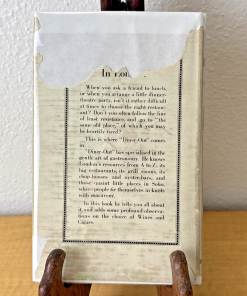 In
When you ask a friend to lunch,
or when you arrange a little dinner-
theatre party, isn't it rather difficult
at times to choose the right restau-
rant? Don't you often follow the line
of least resistance, and go to "the
same old place," of which you may
be heartily tired?
This is where "Diner-Out" comes
in.
"Diner-Out" has specialised in the
gentle art of gastronomy. He knows
London's restaurants from A to Z; its
big restaurants, its grill rooms, its
chop-houses and oyster-bars, and
those quaint little places in Soho,
where people tie themselves in knots
with macaroni.
In this book he tells you all about
it, and adds some profound observa-
tions on the choice of Wines and
Cigars.